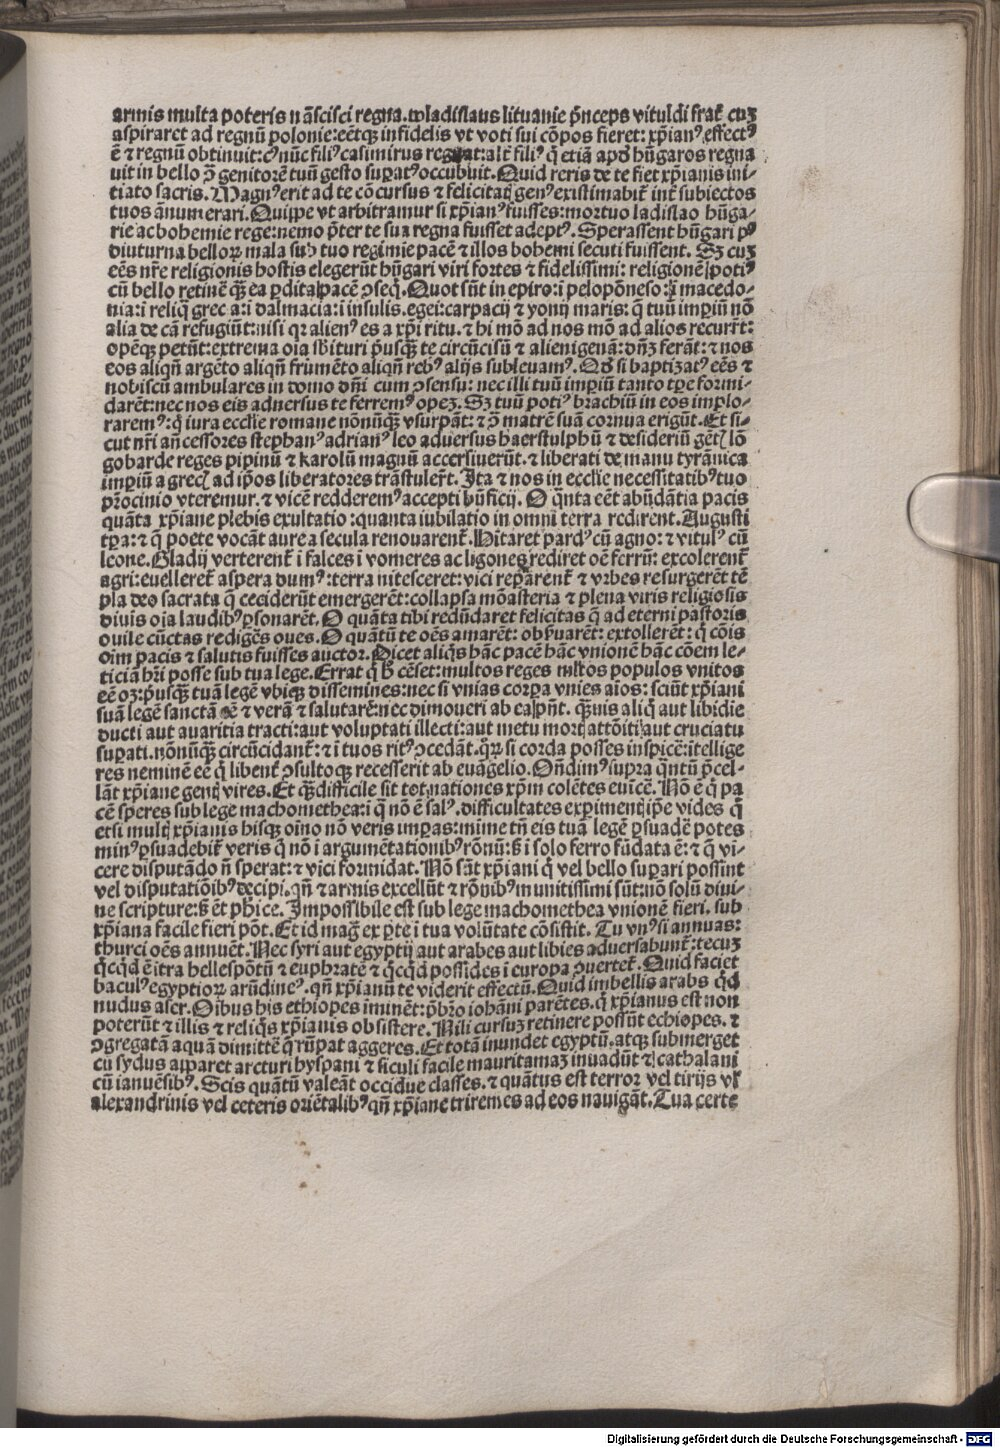 armis multa poteris nãscisci regna. wladislaus lituanie p̃nceps vituldi frat̃ cuz
aspiraret ad regnũ polonie: eẽtqꝫ infidelis vt voti sui cõpos fieret: xp̃ianꝰ effectꝰ
ẽ ⁊ regnũ obtinuit: cꝰ nũc filiꝰ casimirus regnat: alt̃ filiꝰ q̃ etiã apud hũgaros regna
uit in bello ꝯ̃ genitorẽ tuũ gesto suꝑatꝰ occubuit. Quid reris de te fiet xp̃ianis ini-
tiato sacris. Magnꝰ erit ad te cõcursus ⁊ felicitatꝭ genꝰ existimabit̃ int̃ subiectos
tuos ãnumerari. Quippe vt arbitramur si xp̃ianꝰ fuisses: mortuo ladislao hũga-
rie ac bohemie rege: nemo p̃ter te sua regna fuisset adeptꝰ. Sperassent hũgari pꝰ
diuturna belloꝝ mala sub tuo regimie pacẽ ⁊ illos bohemi secuti fuissent. Sꝫ cuz
eẽs nr̃e religionis hostis elegerũt hũgari viri fortes ⁊ fidelissimi: religionẽ potiꝰ
cũ bello retinẽ qꝫ̃ ea ꝑdita pacẽ ꝯseq̃. Quot sũt in epiro: ĩ pelopõneso: ĩ macedo-
nia: ĩ reliq̃ grecia: ĩ dalmacia: ĩ insulis. egei: carpacij ⁊ yonij maris: q̃ tuũ imꝑiũ nõ
alia de cã refugiũt: nisi qꝛ alienꝰ es a xp̃i ritu. ⁊ hi mõ ad nos mõ ad alios recurr̃t:
opẽqꝫ petũt: extrema oĩa sb̃ituri p̃usqꝫ̃ te circũcisũ ⁊ alienigenã: dñꝫ ferãt: ⁊ nos
eos aliqñ argẽto aliqñ frumẽto aliqñ rebꝰ alijs subleuamꝰ. Qd̃ si baptizatꝰ eẽs ⁊
nobiscũ ambulares in domo dñi cum ꝯsensu: nec illi tuũ imꝑiũ tanto tꝑe formi-
darẽt: nec nos eis aduersus te ferremꝰ opeꝫ. Sꝫ tuũ potiꝰ brachiũ in eos implo-
raremꝰ: q̃ iura ecclie romane nõnũqꝫ̃ vsurpãt: ⁊ ꝯ̃ matrẽ suã cornua erigũt. Et si-
cut nr̃i añcessores stephanꝰ adrianꝰ leo aduersus haerstulphũ ⁊ desideriũ gẽtꝭ lõ
gobarde reges pipinũ ⁊ karolũ magnũ accersiuerũt. ⁊ liberati de manu tyrãnica
imꝑiũ a grecꝭ ad ip̃os liberatores trãstuler̃t. Ita ⁊ nos in ecclie necessitatibꝰ tuo
pr̃ocinio vteremur. ⁊ vicẽ redderemꝰ accepti bñficij. O q̃nta eẽt abũdãtia pacis
quãta xp̃iane plebis exultatio: quanta iubilatio in omni terra redirent. Augusti
tꝑa: ⁊ q̃ poete vocãt aurea secula renouarent̃. Hitaret pardꝰ cũ agno: ⁊ vitulꝰ cũ
leone. Gladij verterent̃ ĩ falces ĩ vomeres ac ligones rediret oẽ ferrũ: excolerent̃
agri: euelleret̃ aspera dumꝰ: terra nitesceret: vici reꝑarent̃ ⁊ vrbes resurgerẽt tẽ
pla deo sacrata q̃ ceciderũt emergerẽt: collapsa mõasteria ⁊ plena viris religiosis
diuis oĩa laudibꝰ ꝑsonarẽt. O quãta tibi redũdaret felicitas q̃ ad eterni pastoris
ouile cũctas redigẽs oues. O quãtũ te oẽs amarẽt: obẽuarẽt: extollerẽt: q̃ cõis
oĩm pacis ⁊ salutis fuisses auctor. Dicet aliq̃s hãc pacẽ hãc vnionẽ hãc cõem le-
ticiã hr̃i posse sub tua lege. Errat q̃ h̃ cẽset: multos reges mltos populos vnitos
eẽ oꝫ: p̃usqꝫ̃ tuã legẽ vbiqꝫ dissemines: nec si vnias corꝑa vnies aĩos: sciũt xp̃iani
suã legẽ sanctã eẽ ⁊ verã ⁊ salutarẽ: nec dimoueri ab ea pñt. qꝫ̃uis aliq̃ aut libidie
ducti aut auaritia tracti: aut voluptati illecti: aut metu mortꝭ attõiti aut cruciatu
suꝑati. nõnũqꝫ̃ circũcidant̃: ⁊ ĩ tuos ritꝰ ꝯcedãt. qꝛ̃ si corda posses inspicẽ: ĩtellige
res neminẽ eẽ q̃ libent̃ ꝯsultoqꝫ recesserit ab euãgelio. Oñdimꝰ supra q̃ntũ p̃cel-
lãt xp̃iane gentꝭ vires. Et qꝫ̃ difficile sit tot nationes xp̃m colẽtes euĩcẽ. Nõ ẽ q̃ pa
cẽ speres sub lege machomethea: ĩ q̃ nõ ẽ salꝰ. difficultates exꝑimentꝭ ip̃e vides q̃
etsi multꝭ xp̃ianis hisqꝫ oĩno nõ veris imꝑas: mime tñ eis tuã legẽ ꝑsuadẽ potes
minꝰ ꝑsuadebit̃ veris q̃ nõ ĩ argumẽtationibꝰ rõnũ: sꝫ ĩ solo ferro fũdata ẽ: ⁊ q̃ vi-
cere disputãdo ñ sperat: ⁊ vici formidat. Nõ sũt xp̃iani q̃ vel bello suꝑari possint
vel disputatiõibꝰ decipi. qñ ⁊ armis excellũt ⁊ rõnibꝰ munitissimi sũt: nõ solũ diui-
ne scripture: sꝫ ẽt ph̃ice. Impossibile est sub lege machomethea vnionẽ fieri. sub
xp̃iana facile fieri põt. Et id mag̃ ex ꝑte ĩ tua volũtate cõsistit. Tu vnꝰ si annuas:
thurci oẽs annuẽt. Nec syri aut egyptij aut arabes aut libies aduersabunt̃: tecuz
q̃cq̃d ẽ ĩtra hellespõtũ ⁊ euphratẽ ⁊ q̃cq̃d possides ĩ europa ꝯuertet̃. Quid faciet
baculꝰ egyptioꝝ arũdineꝰ. qñ xp̃ianũ te viderit effectũ. Quid imbellis arabs q̃d
nudus afer. Oĩbus his ethiopes iminẽt: p̃bro iohãni parẽtes. q̃ xp̃ianus est non
poterũt ⁊ illis ⁊ reliq̃s xp̃ianis obsistere. Nili cursuz retinere possũt ethiopes. ⁊
ꝯgregatã aquã dimittẽ q̃ rũpat aggeres. Et totã inundet egyptũ. atqꝫ submerget
cũ sydus apparet arcturi hyspani ⁊ siculi facile mauritamaz inuadũt ⁊ cathalani
cũ ianuẽsibꝰ. Scis quãtũ valeãt occidue classes. ⁊ quãtus est terror vel tirijs vl̃
alexandrinis vel ceteris oriẽtalibꝰ qñ xp̃iane triremes ad eos nauigãt. Tua certe
Digitalisierung gefördert durch die Deutsche Forschungsgemeinschaft - DFG